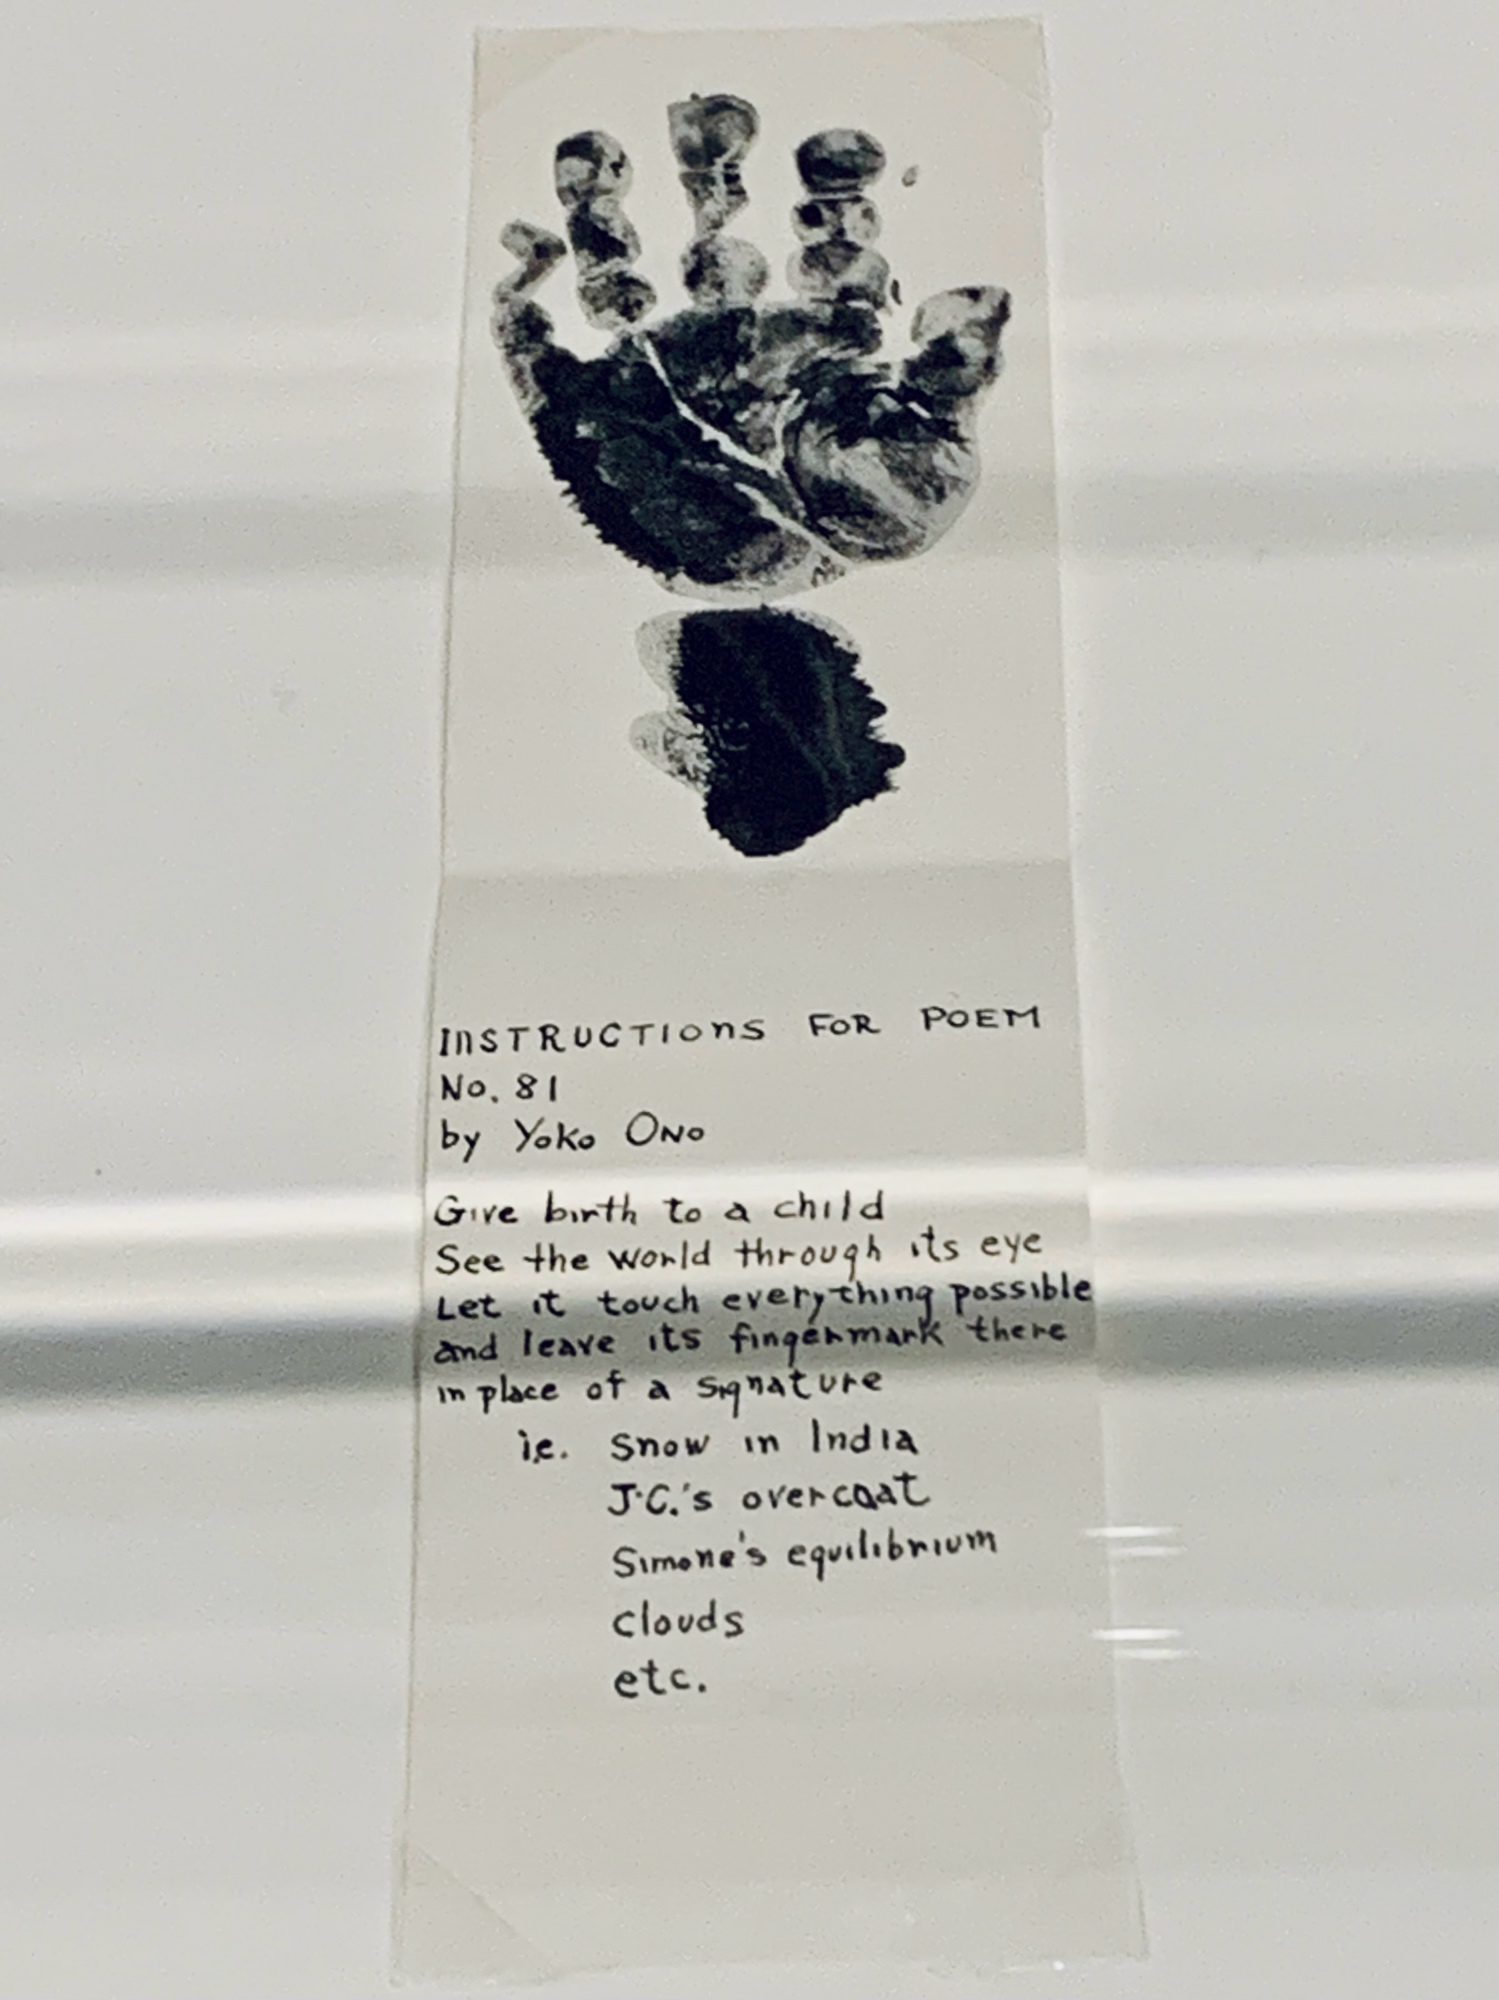 INSTRUCTIONS FOR POEM
No. 81
by Yoko Ono
Give birth to a child
See the world through its eye
Let it touch everything possible
and leave its fingermark there
in place of a signature
i.e. Snow in India
J.C.'s overcoat
Simone's equilibrium
Clouds
etc.